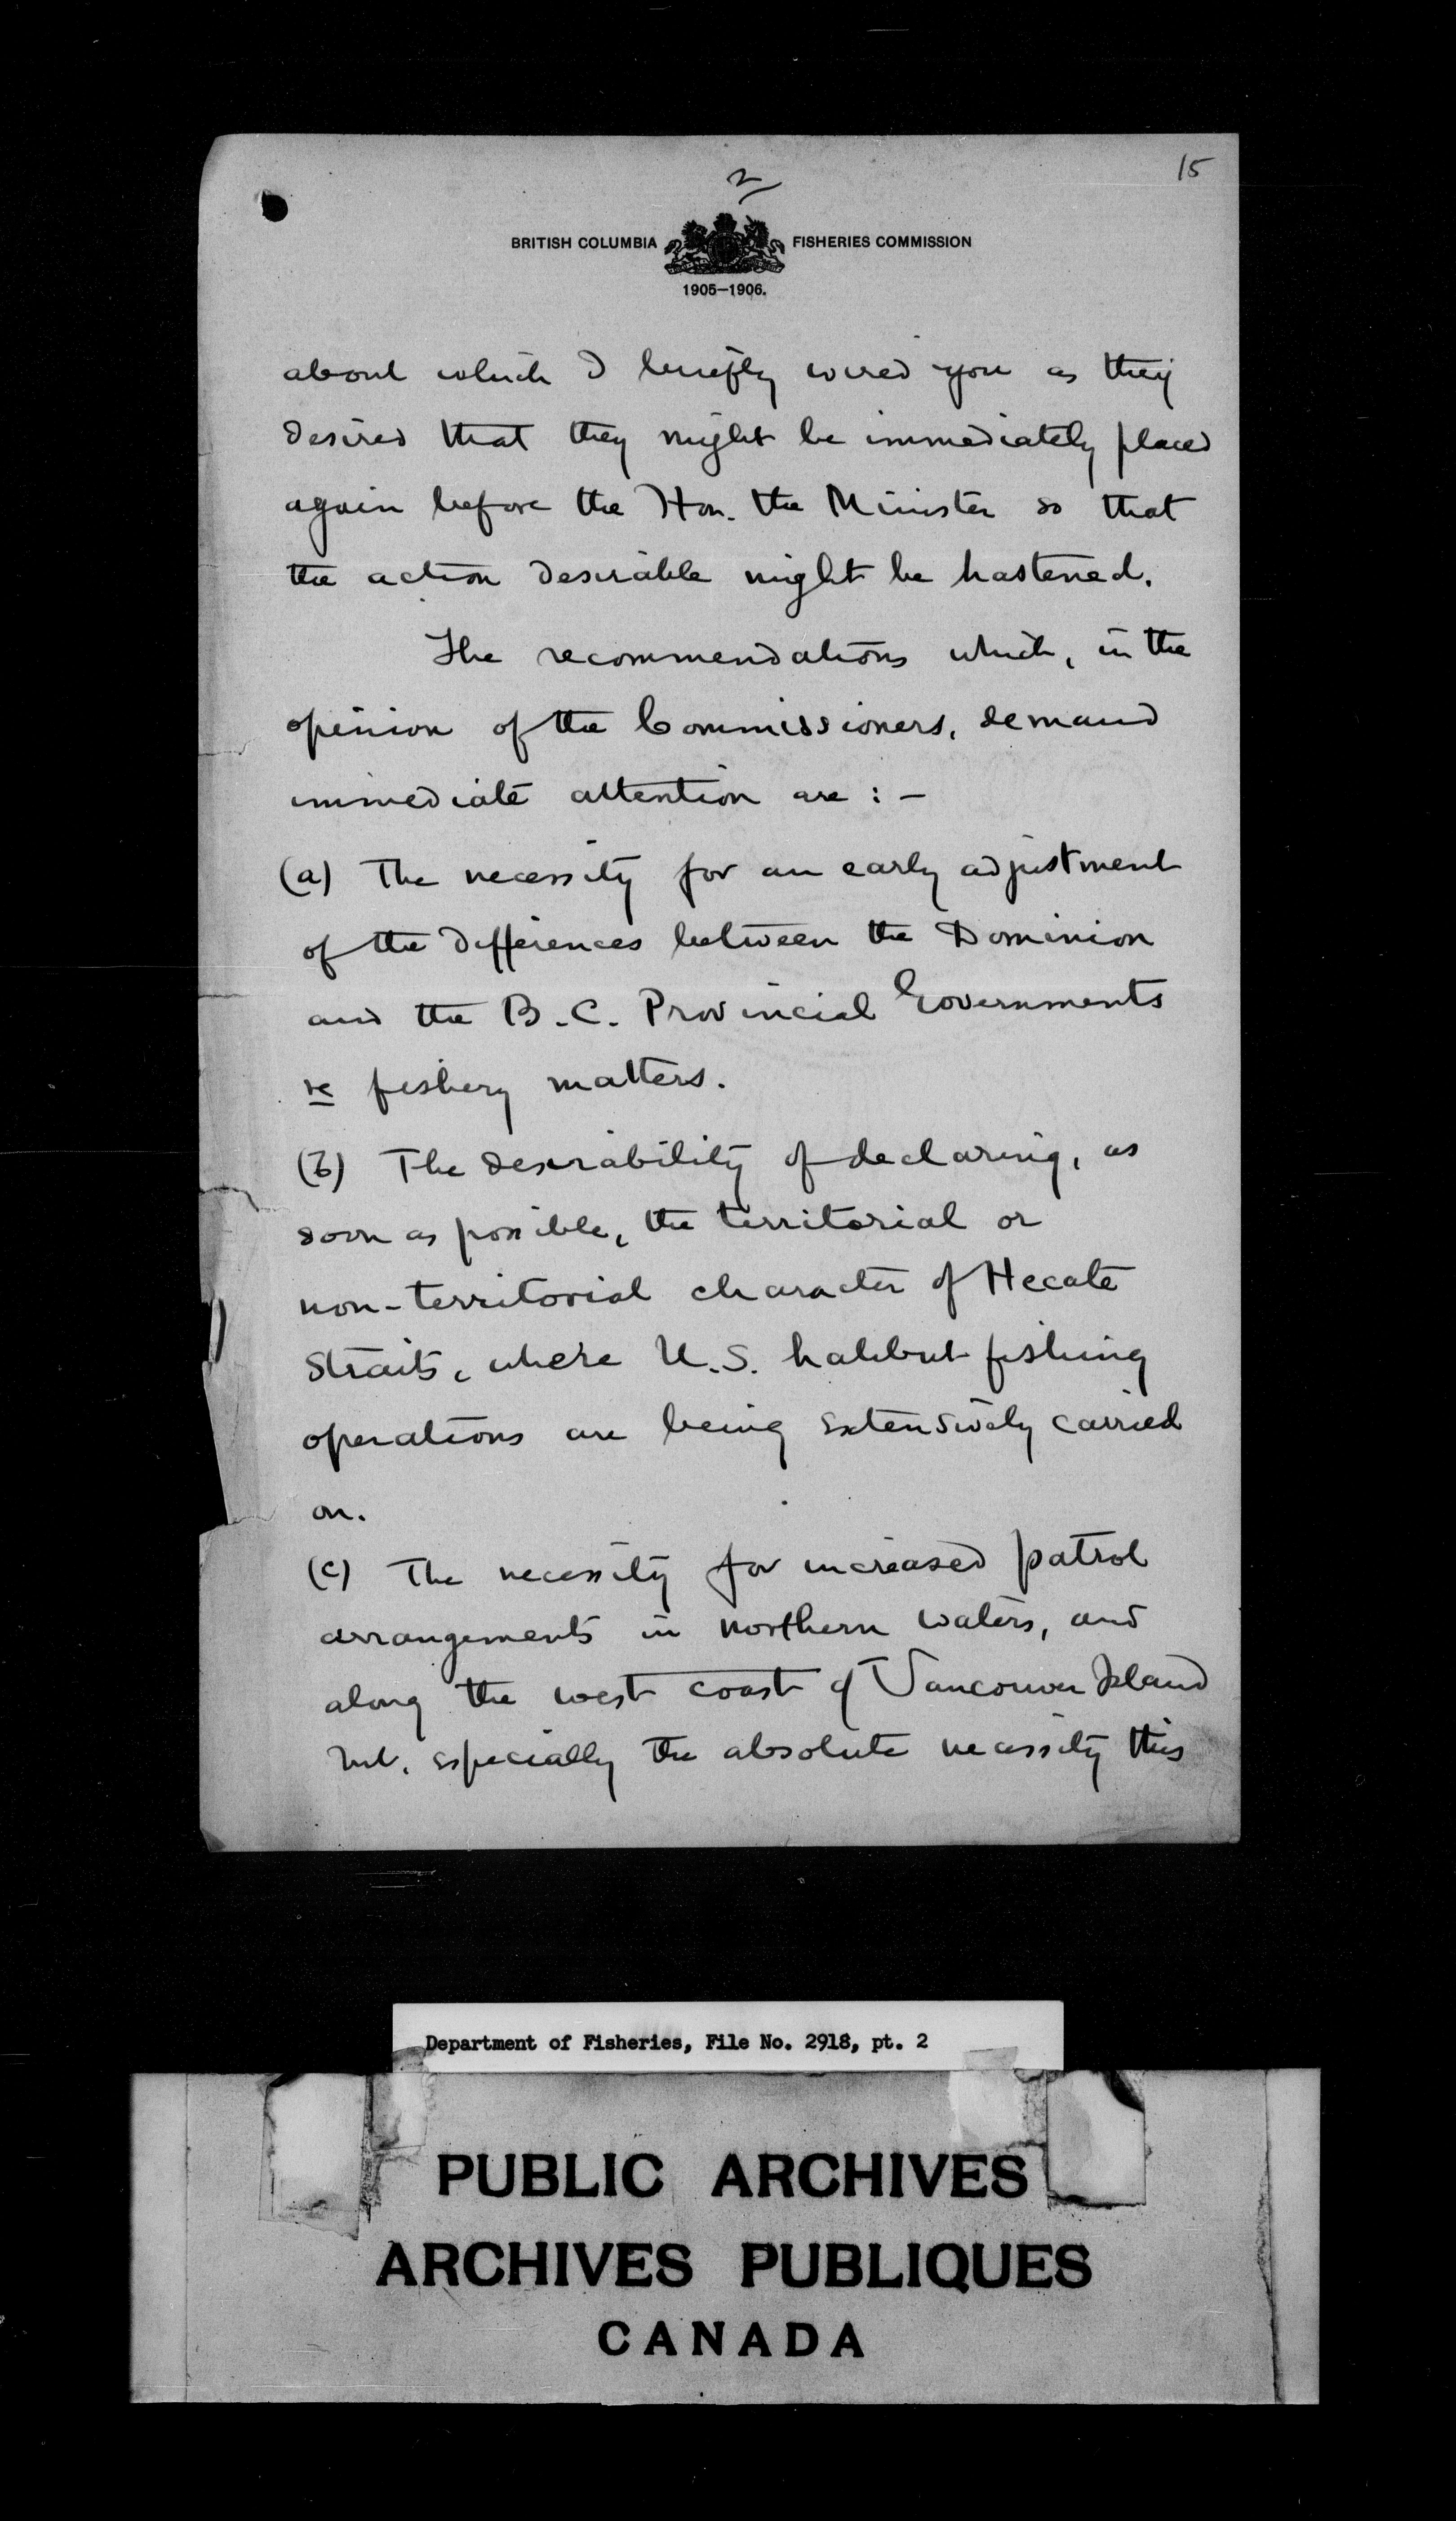 15
2
BRITISH COLUMBIA FISHERIES COMMISSION
1905–1906.
about which I briefly wired you as they
desired that they might be immediately placed
again before the Hon. the Minister so that
the action desirable might be hastened.
The recommendations which, in the
opinion of the Commissioners, demand
immediate attention are : –
(a) The necessity for an early adjustment
of the differences between the Dominion
and the B.C. Provincial Governments
re fishery matters.
(b) The desirability of declaring, as
soon as possible, the territorial or
non-territorial character of Hecate
Straits, where U.S. halibut fishing
operations are being extensively carried
on.
(c) The necessity for increased patrol
arrangements in northern waters, and
along the west coast of Vancouver Island
especially the absolute necessity this
Department of Fisheries, File No. 2918, pt. 2
PUBLIC ARCHIVES
ARCHIVES PUBLIQUES
CANADA